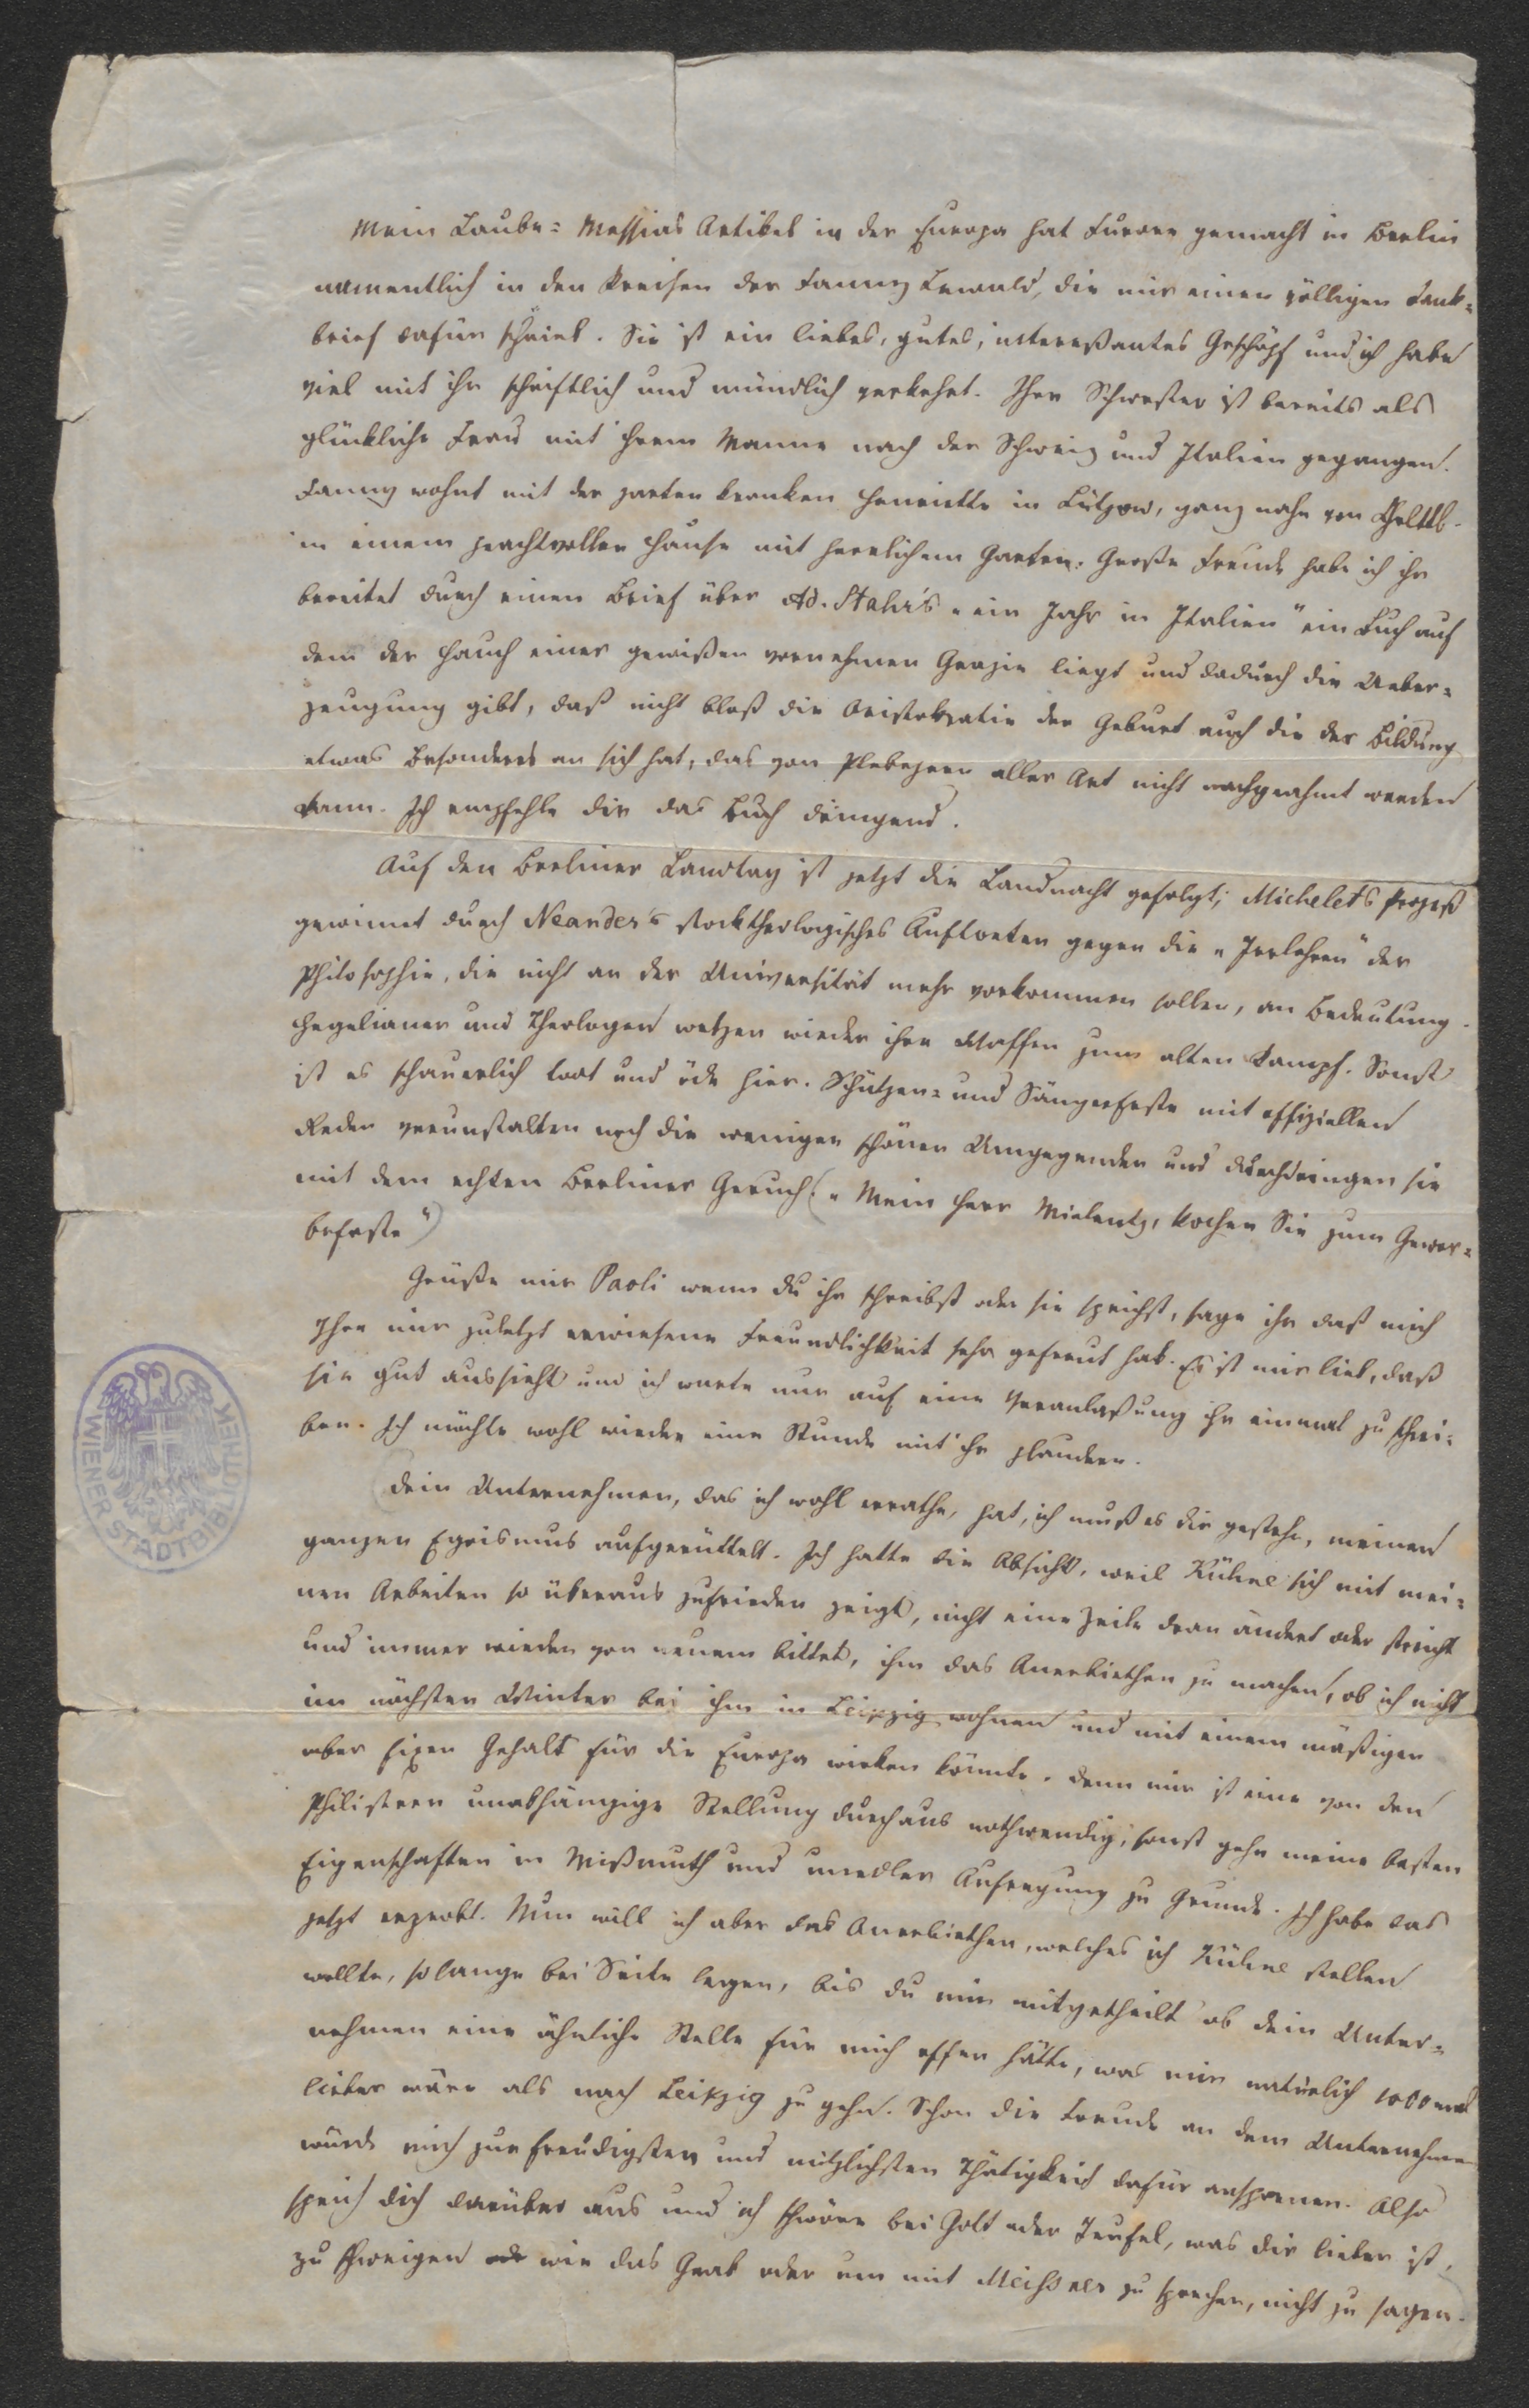 Mein Laube=Messias Artikel in der Europa hat Furore gemacht in Berlin
namentlich in den Kreisen der Fanny Lewald, die mir einen völligen Dank=
brief dafür schrieb. Sie ist ein liebes, gutes, interessantes Geschöpf und ich habe
viel mit ihr schriftlich und mündlich verkehrt. Ihre Schwester ist bereits als
glückliche Frau mit ihrem Manne nach der Schweiz und Italien gegangen.
Fanny wohnt mit der zarten kranken Henriette in Lützow, ganz nahe von
in einem prachtvollen Hause mit herrlichem Garten. Große Freude habe ich ihr
bereitet durch einen Brief über Ad. Stahr's „ein Jahr in Italien" ein Buch auf
dem der Hauch einer gewißen vornehmen Grazie liegt und dadurch die Ueber=
zeugung gibt, daß nicht bloß die Aristokratie der Geburt auch die der Bildung
etwas Besonderes an sich hat, das von Plebejern aller Art nicht nachgeahmt werden
kann. Ich empfehle dir das Buch dringend.
Auf den Berliner Landtag ist jetzt die Landnacht gefolgt; Michelets Prozeß
gewinnt durch Neander's stocktheologisches Auftreten gegen die „Irrlehren" der
Philosophie, die nicht an der Universität mehr vorkommen sollen, an Bedeutung.
Hegelianer und Theologen wetzen wieder ihre Waffen zum alten Kampf. Sonst
ist es schauerlich todt und öde hier. Schützen= und Sängerfeste mit offiziellen
Reden verunstalten noch die wenigen schönen Umgegenden und durchdringen sie
mit dem echten Berliner Geruch („Mein Herr Mielentz, kochen Sie zum Gewer=
befeste")
Grüße mir Paoli wenn du ihr schreibst oder sie sprichst, sage ihr daß mich
Ihre mir zuletzt erwiesene Freundlichkeit sehr gefreut hab. Es ist mir lieb, daß
sie gut aussieht und ich warte nur auf eine Veranlaßung ihr einmal zu schrei=
ben. Ich möchte wohl wieder eine Stunde mit ihr plaudern.
Dein Unternehmen, das ich wohl errathe, hat, ich muß es dir gestehn, meinen
ganzen Egoismus aufgerüttelt. Ich hatte die Absicht, weil Kühne sich mit mei=
nen Arbeiten so überaus zufrieden zeigt, nicht eine Zeile dran ändert oder streicht
und immer wieder von neuem bittet, ihm das Anerbiethen zu machen, ob ich nicht
im nächsten Winter bei ihm in Leipzig wohnen und mit einem mäßigen
aber fixen Gehalt für die Europa wirken könnte. Denn mir ist eine von den
Philistern unabhängige Stellung durchaus nothwendig, sonst gehn meine besten
Eigenschaften in Mißmuth und unedler Aufregung zu Grunde. Ich habe das
jetzt erprobt. Nun will ich aber das Anerbiethen, welches ich Kühne stellen
wollte, solange bei Seite legen, bis du mir mitgetheilt ob dein Unter=
nehmen eine ähnliche Stelle für mich offen hätte, was mir natürlich 1000mal
lieber wäre als nach Leipzig zu gehn. Schon die Freude an dem Unternehmen
würde mich zur freudigsten und nützlichsten Thätigkeit dafür anspornen. Also
sprich dich darüber aus und ich schwöre bei Gott oder Teufel, was dir lieber ist,
zu schweigen wie das Grab oder um mit Meißner zu sprechen, nicht zu sagen.
WIENER STADTBIBLIOTHEK